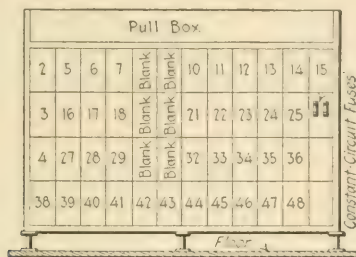 Pull Box.
2 5 6 7 Blank Blank 10 11 12 13 14 15
3 16 17 18 Blank Blank 21 22 23 24 25
4 27 28 29 Blank Blank 32 33 34 35 36
38 39 40 41 42 43 44 45 46 47 48
Constant Circuit Fuses
Floor